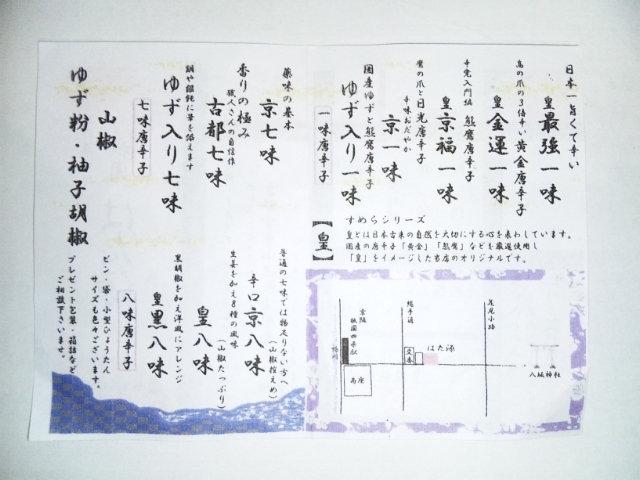 日本一旨くて辛い
皇 最強一味
鷹の爪の3倍辛い黄金唐辛子
皇 金運一味
辛党入門編 熊鷹唐辛子
皇 京福一味
鷹の爪と日光唐辛子
辛味おだやか
京一味
国産ゆずと熊鷹唐辛子
ゆず入り一味
一味唐辛子
薬味の基本
京七味
香りの極み
職人さんの自信作
古都七味
鍋や饂飩に華を添えます
ゆず入り七味
七味唐辛子
山椒
ゆず粉・柚子胡椒
【皇】
すめらシリーズ
皇とは日本古来の自然を大切にする心を表わしています。
国産の唐辛子「黄金」「熊鷹」などを厳選使用し
「皇」をイメージした当店のオリジナルです。
普通の七味では物足りない方へ
辛口京八味
(山椒控えめ)
生姜を加え8種の風味
皇八味
(山椒たっぷり)
黒胡椒を加え洋風にアレンジ
皇黒八味
八味唐辛子
ビン・袋・小型ひょうたん
サイズも色々ございます。
プレゼント包装・箱詰など
ご相談下さいませ。
京阪
祇園四条駅
縄手通
花見小路
交番
はた源
南座
八坂神社